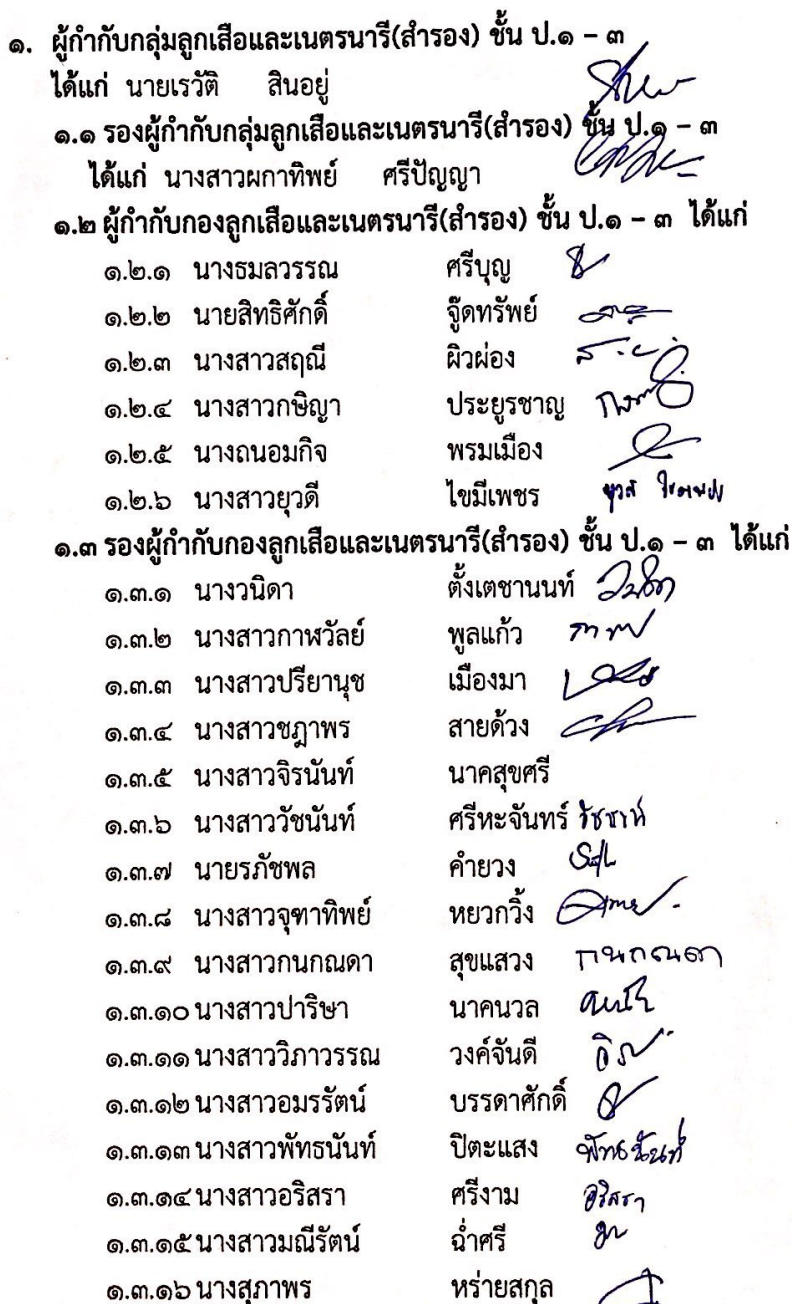 ๑. ผู้กำกับกลุ่มลูกเสือและเนตรนารี(สำรอง) ชั้น ป.๑ – ๓
ได้แก่ นายเรวัติ สินอยู่
๑.๑ รองผู้กำกับกลุ่มลูกเสือและเนตรนารี(สำรอง) ชั้น ป.๑ – ๓
ได้แก่ นางสาวผกาทิพย์ ศรีปัญญา
๑.๒ ผู้กำกับกองลูกเสือและเนตรนารี(สำรอง) ชั้น ป.๑ – ๓ ได้แก่
๑.๒.๑ นางธมลวรรณ ศรีบุญ
๑.๒.๒ นายสิทธิศักดิ์ จู๊ดทรัพย์
๑.๒.๓ นางสาวสฤณี ผิวผ่อง
๑.๒.๔ นางสาวกษิญา ประยูรชาญ
๑.๒.๕ นางถนอมกิจ พรมเมือง
๑.๒.๖ นางสาวยุวดี ไขมีเพชร
๑.๓ รองผู้กำกับกองลูกเสือและเนตรนารี(สำรอง) ชั้น ป.๑ – ๓ ได้แก่
๑.๓.๑ นางวนิดา ตั้งเตชานนท์ วนิดา
๑.๓.๒ นางสาวกาหวัลย์ พูลแก้ว
๑.๓.๓ นางสาวปรียานุช เมืองมา
๑.๓.๔ นางสาวชฎาพร สายด้วง
๑.๓.๕ นางสาวจิรนันท์ นาคสุขศรี
๑.๓.๖ นางสาววัชนันท์ ศรีหะจันทร์
๑.๓.๗ นายรภัชพล คำยวง
๑.๓.๘ นางสาวจุฑาทิพย์ หยวกวิ้ง
๑.๓.๙ นางสาวกนกณดา สุขแสวง กนกณดา
๑.๓.๑๐ นางสาวปาริษา นาคนวล
๑.๓.๑๑ นางสาววิภาวรรณ วงค์จันดี
๑.๓.๑๒ นางสาวอมรรัตน์ บรรดาศักดิ์
๑.๓.๑๓ นางสาวพัทธนันท์ ปิตะแสง พัทธนันท์
๑.๓.๑๔ นางสาวอริสรา ศรีงาม อริสรา
๑.๓.๑๕ นางสาวมณีรัตน์ ฉ่ำศรี
๑.๓.๑๖ นางสุภาพร หร่ายสกุล